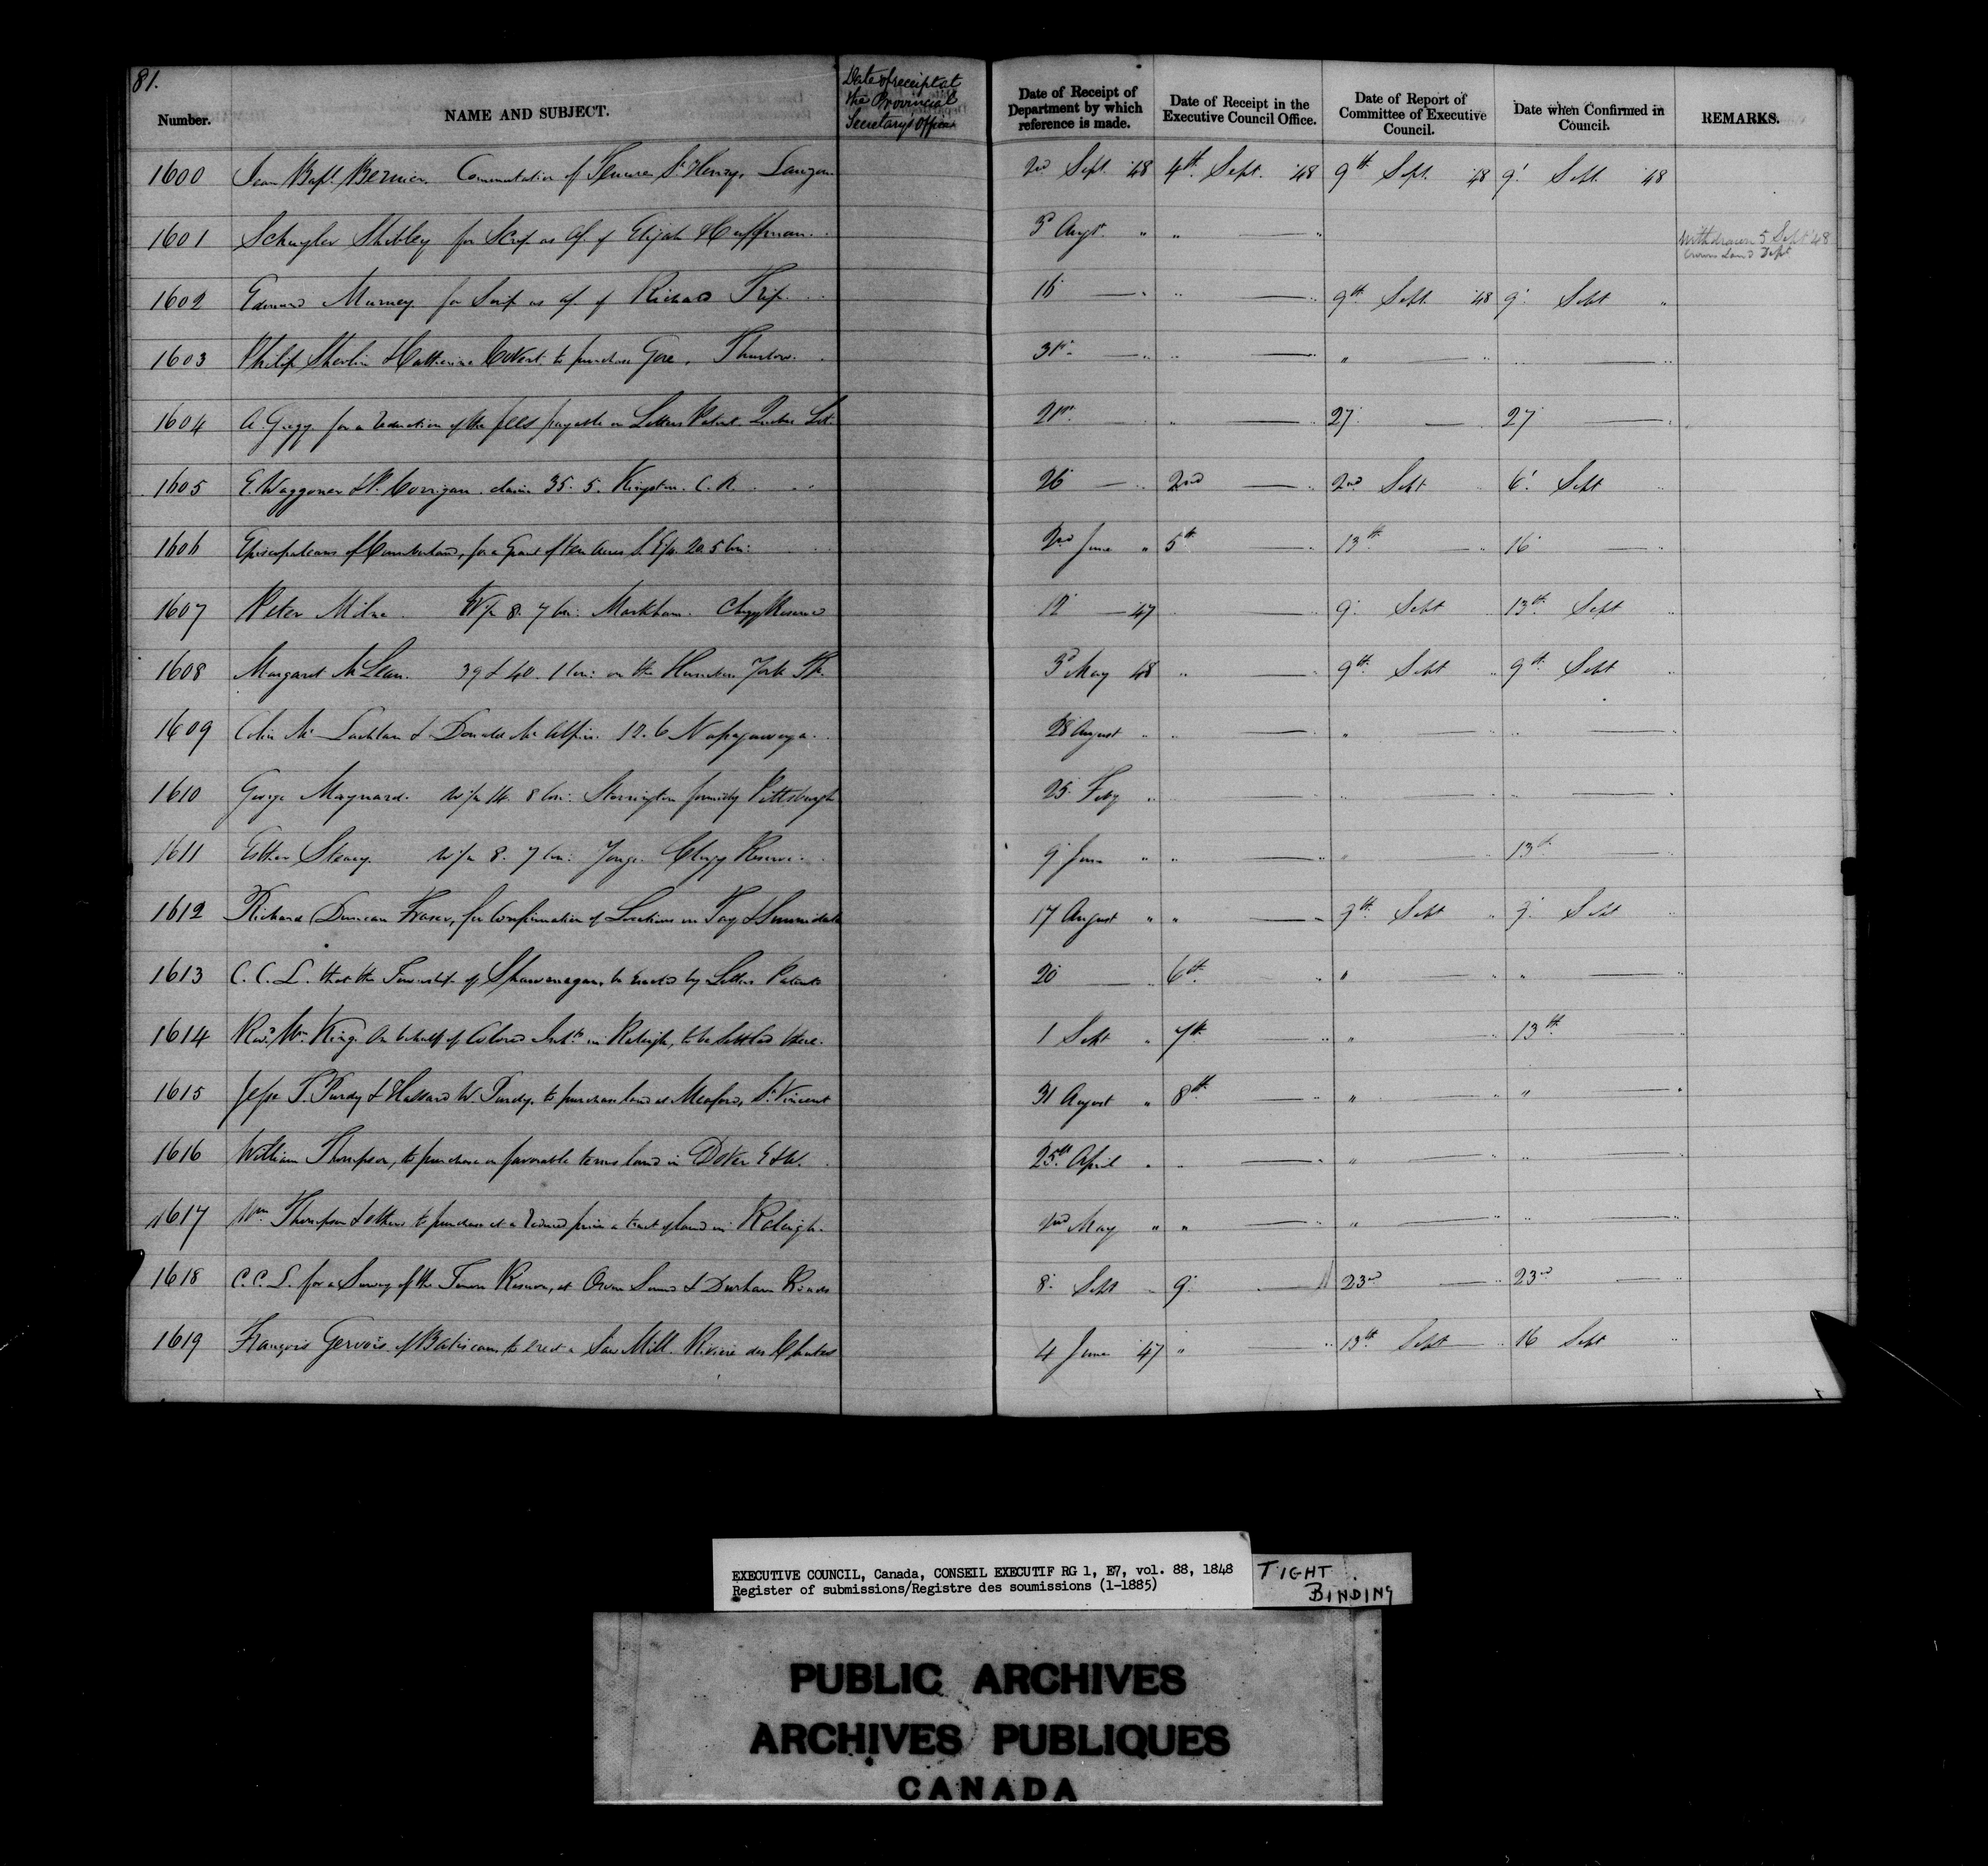 81.
Number. NAME AND SUBJECT. Date of receipt at the Provincial Secretary's Office Date of Receipt of Department by which reference is made. Date of Receipt in the Executive Council Office. Date of Report of Committee of Executive Council. Date when Confirmed in Council. REMARKS.
1600 Jean Bapt. Bernier. Commutation of Tenure St Henry, Lauzon. 2nd Sept. '48 4th Sept. '48 9th Sept. '48 9' Sept. '48
1601 Schuyler Shibley for Scrip as af. of Elijah Huffman. 3d Augt. " " — " Withdrawn 5 Sept '48 Crown Land Dept
1602 Edmund Murney for Scrip as af. of Richard Trip. 16 — " " — " 9th Sept. '48 9' Sept "
1603 Philip Shevlin & Catherine to purchase Gore, Thurlow. 31st — " " — " " — " " — "
1604 A. Gugy for a reduction of the fees payable on Letters Patent. Quebec 21st — " " — " 27' — " 27' — "
1605 E. Waggoner & P. Corrigan. claim 35. 5. Kingston. C. R. 26 — " 2nd — " 2nd Sept " 6' Sept "
1606 Episcopalians of Cumberland, for a Grant of ten Acres 20. 5 Con: 2nd June " 5th — " 13th — " 16 — "
1607 Peter Milne. W½ 8. 7 Con: Markham. Clergy Reserve 12 — 47 " — " 9' Sept " 13th Sept "
1608 Margaret McLean. 39 & 40. 1 Con: on the York 3d May 48 " — " 9th Sept " 9th Sept "
1609 Colin McLachlan & Donald McAlpin. 12. 6 Nassagaweya. 28 August " " — " " — " " — "
1610 George Maynard. W½ 14. 8 Con: Storrington formerly Pittsburgh 25 Feby " " — " " — " " — "
1611 Esther W½ 8. 7 Con: Yonge. Clergy Reserve. 9' June " " — " " — " 13th — "
1612 Richard Duncan Fraser, for Confirmation of Locations in Tay & Sunnidale 17 August " " — " 9th Sept " 9' Sept "
1613 C. C. L. that the Township of Shawenegan, be erected by Letters Patent 20 — " 6th — " " — " " — "
1614 Revd Wm King. On behalf of Colored Inhts in Raleigh, to be settled there. 1 Sept " 7th — " " — " 13th — "
1615 Jesse T. Purdy & Hassard W. Purdy, to purchase land at Meaford, St Vincent 31 August " 8th — " " — " " — "
1616 William Thompson, to purchase on favorable terms land in Dover E & W. 25th April " " — " " — " " — "
1617 Wm Thompson & others to purchase at a reduced price a tract of land in Raleigh. 2nd May " " — " " — " " — "
1618 C. C. L. for a Survey of the Town Reserve, at Owen Sound & Durham Roads 8' Sept " 9' — " 23rd — " 23rd — "
1619 François Gervais of Batiscan, to erect a Saw Mill. Riviere des Chutes 4 June '47 " — " 13th Sept — " 16 Sept "
EXECUTIVE COUNCIL, Canada, CONSEIL EXECUTIF RG 1, E7, vol. 88, 1848
Register of submissions/Registre des soumissions (1-1885)
TIGHT
BINDING
PUBLIC ARCHIVES
ARCHIVES PUBLIQUES
CANADA